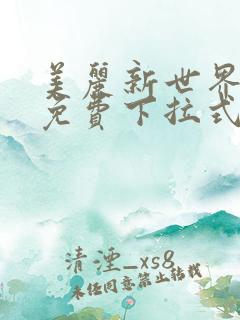 美麗新世界
免費下拉式
清湮_xs8
未经同意禁止转载